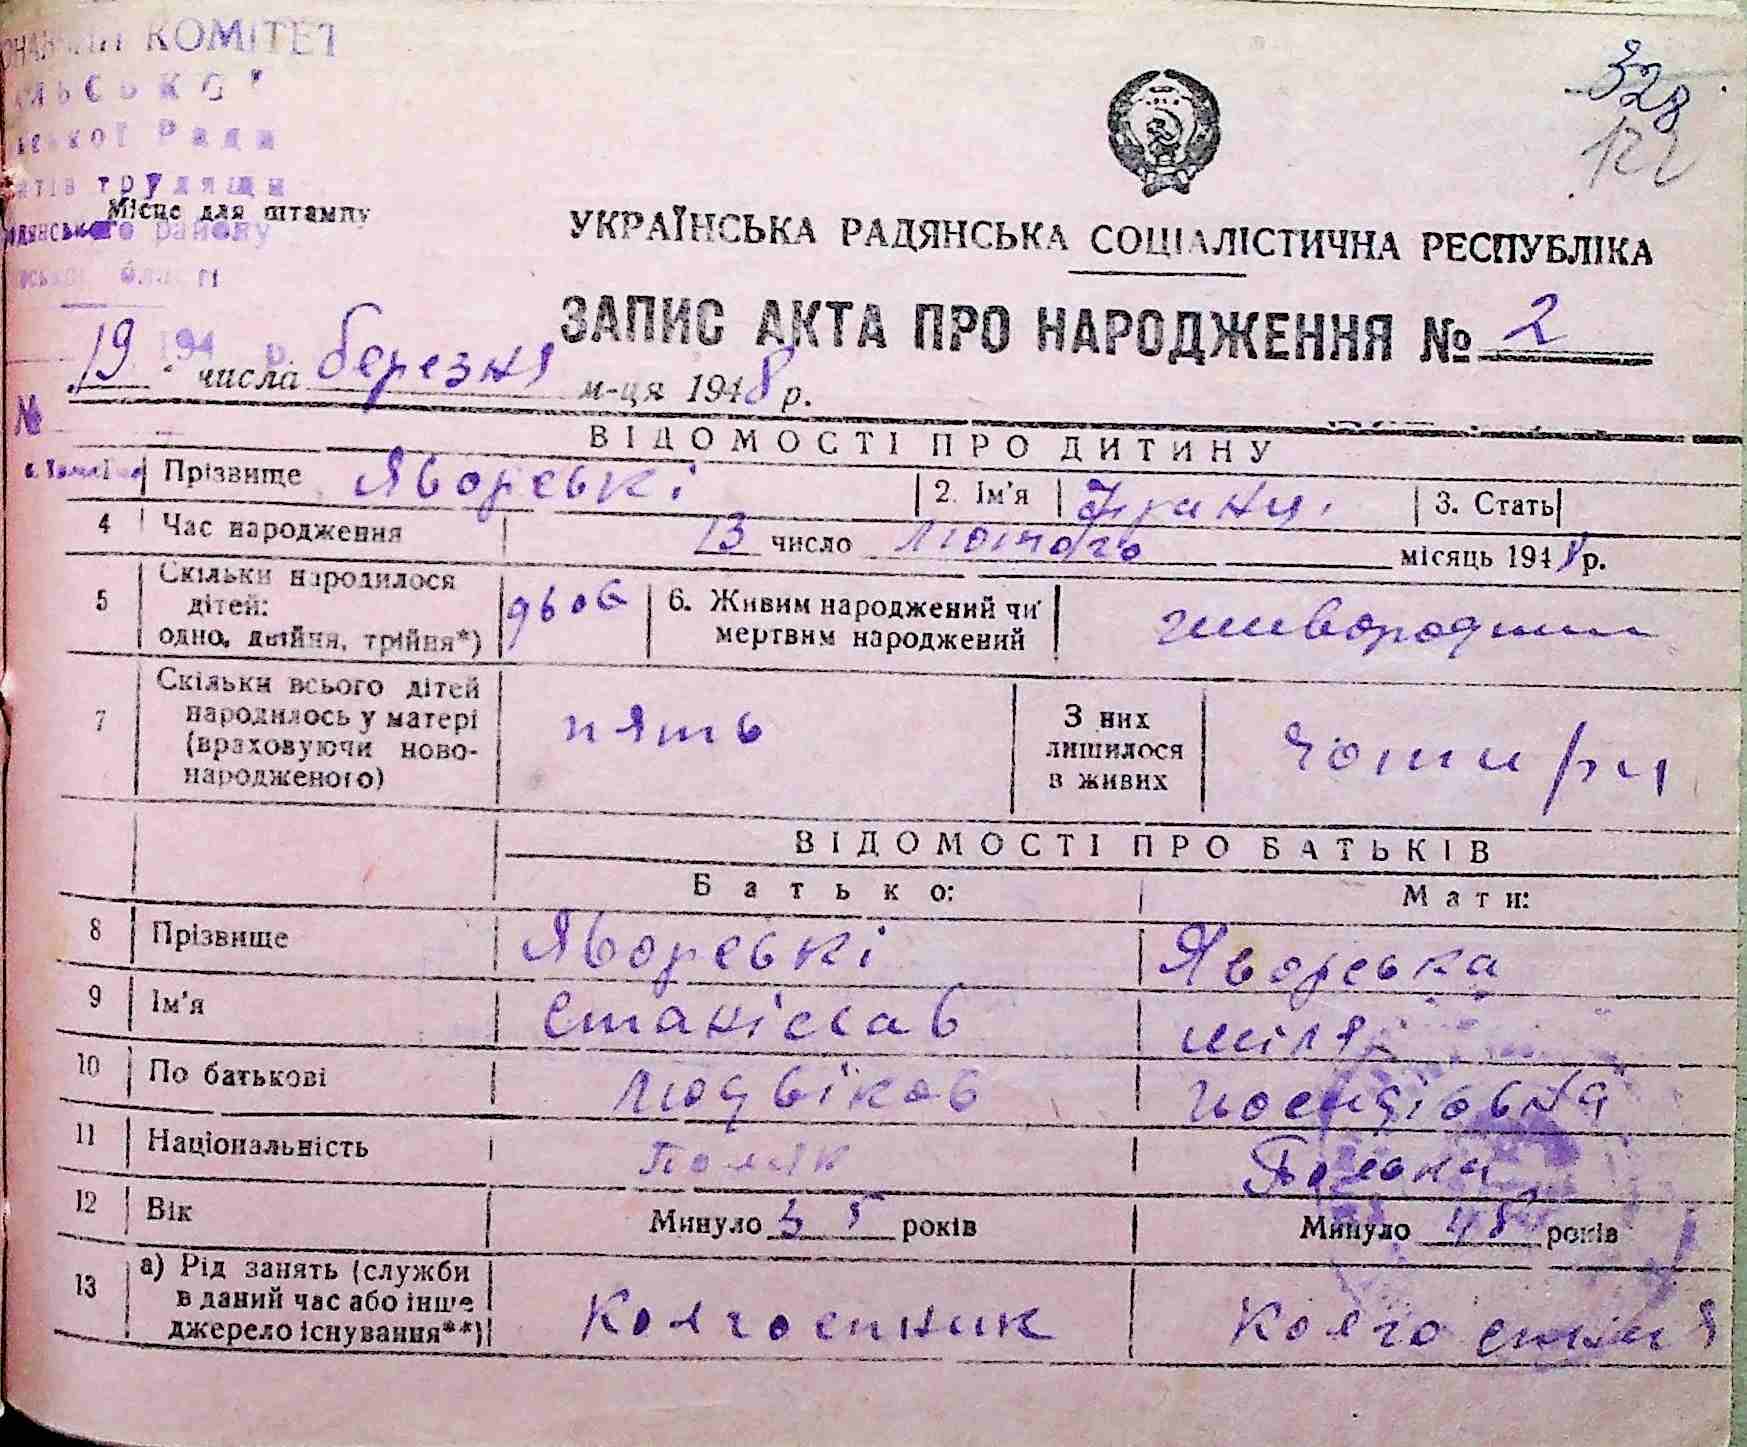 КОМІТЕТ
Рада
Місце для штампу
району
328
УКРАЇНСЬКА РАДЯНСЬКА СОЦІАЛІСТИЧНА РЕСПУБЛІКА
ЗАПИС АКТА ПРО НАРОДЖЕННЯ № 2
19 числа березня м-ця 1948 р.
№
ВІДОМОСТІ ПРО ДИТИНУ
Прізвище Яворські 2. Ім'я 3. Стать
4 Час народження 13 число лютого місяць 1948 р.
5 Скільки народилося
дітей:
одно, двійня, трійня*)
двоє 6. Живим народжений чи
мертвим народжений
7 Скільки всього дітей
народилось у матері
(враховуючи ново-
народженого)
пять З них
лишилося
в живих
чотири
ВІДОМОСТІ ПРО БАТЬКІВ
Батько: Мати:
8 Прізвище Яворські Яворська
9 Ім'я Станіслав
10 По батькові Людвіков
11 Національність Поляк Полька
12 Вік Минуло 35 років Минуло років
13 а) Рід занять (служби
в даний час або інше
джерело існування**)
Колгоспник